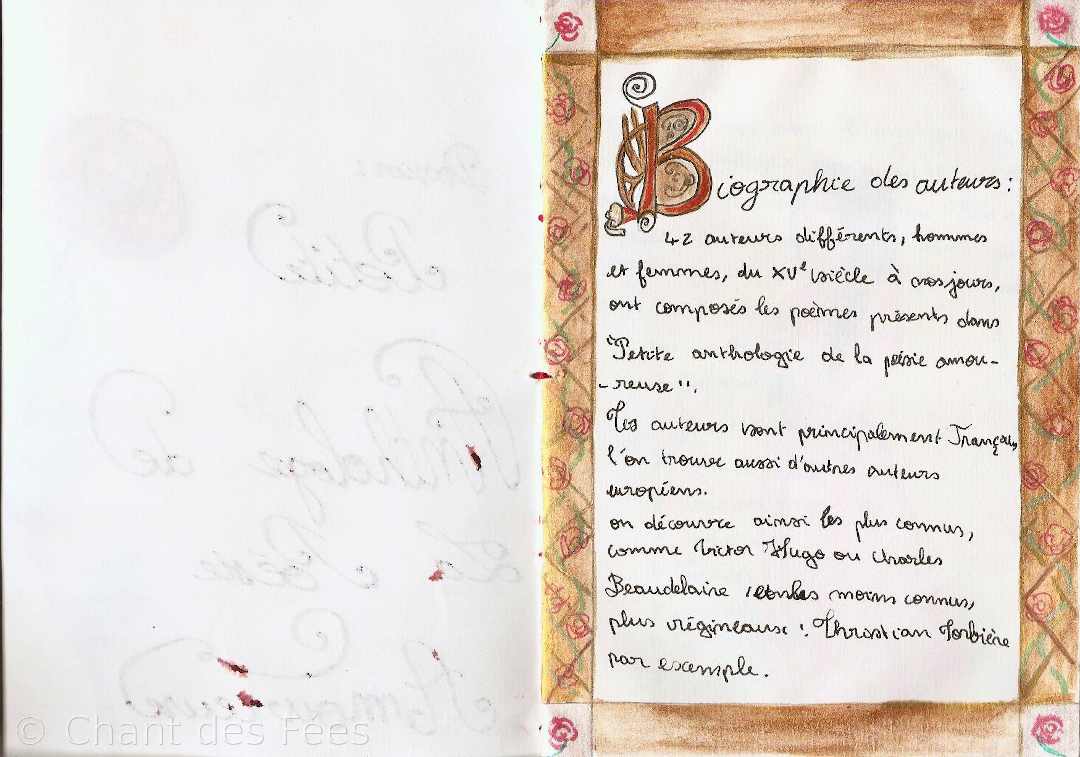 Petite
Anthologie de
La Poésie
Amoureuse
© Chant des Fées
Biographie des auteurs :
42 auteurs différents, hommes
et femmes, du XVe siècle à nos jours,
ont composés les poèmes présents dans
"Petite anthologie de la poésie amou-
-reuse".
Les auteurs sont principalement Français,
l'on trouve aussi d'autres auteurs
européens.
on découvre ainsi les plus connus,
comme Victor Hugo ou Charles
Beaudelaire, les moins connus,
plus régionaux : Christian Sorbière
par exemple.